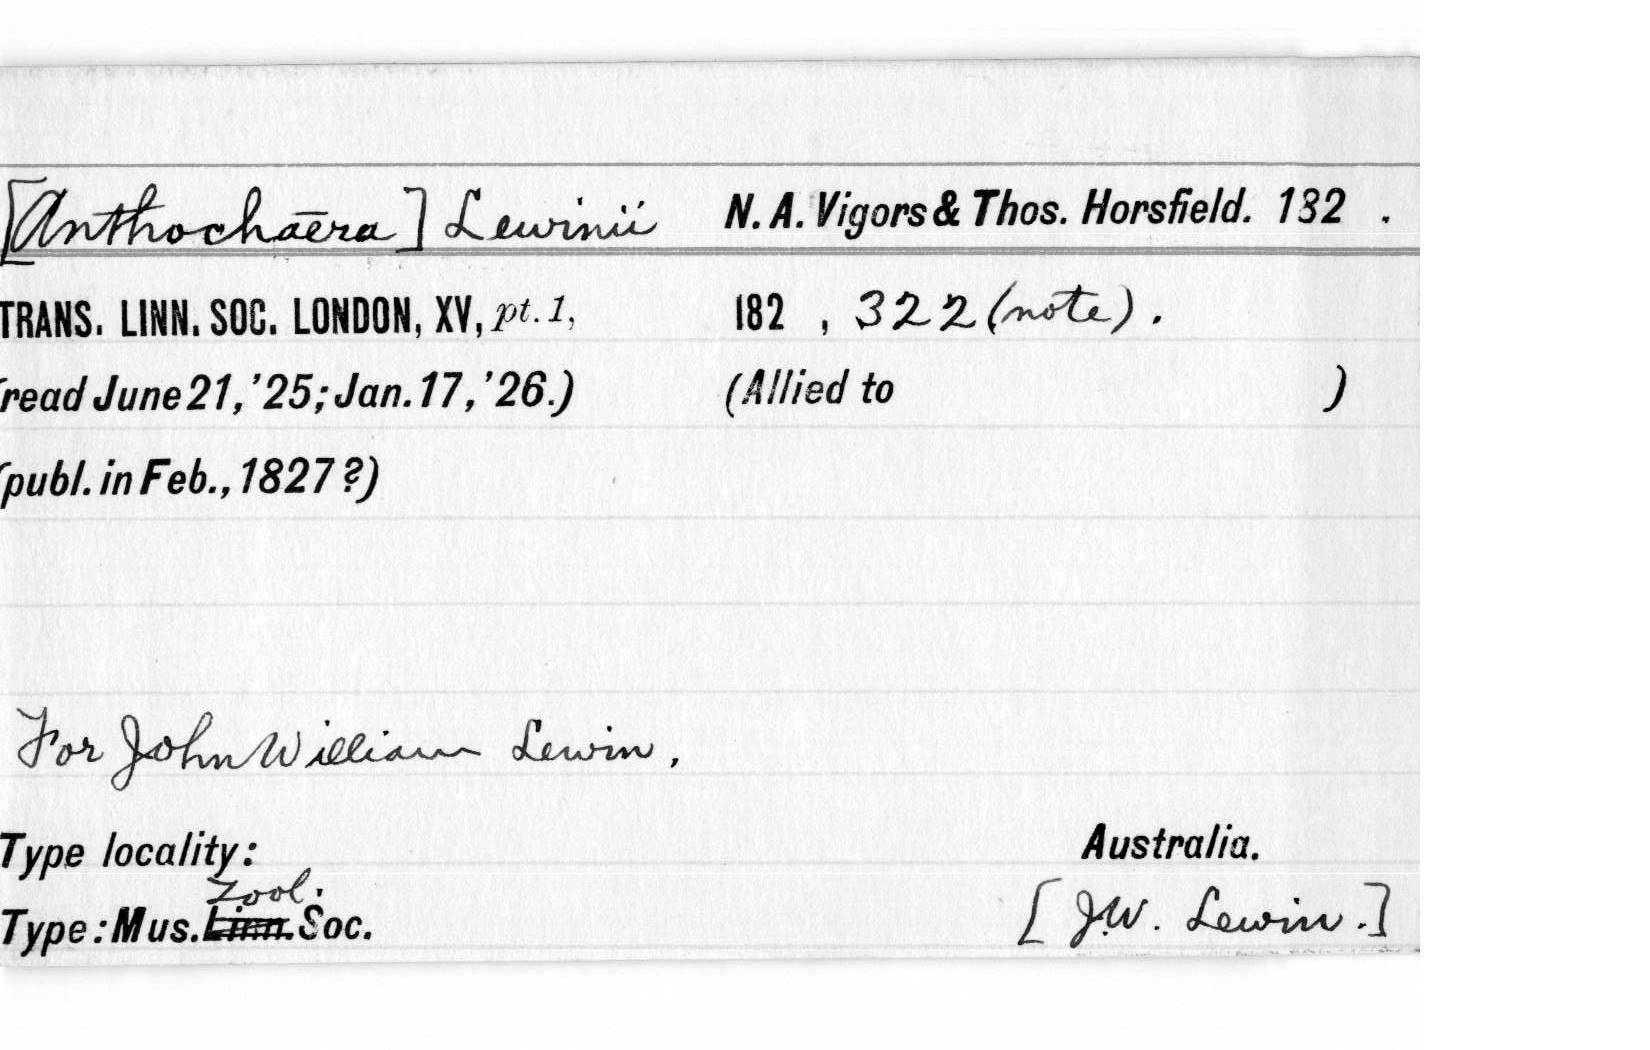 [Anthochaera] Lewinii N. A. Vigors & Thos. Horsfield. 182 .
TRANS. LINN. SOC. LONDON, XV, pt. 1, 182 , 322 (note).
(read June 21, '25; Jan. 17, '26.) (Allied to )
(publ. in Feb., 1827 ?)
For John William Lewin.
Type locality: Australia.
Zool.
Type: Mus. Linn. Soc. [J.W. Lewin.]